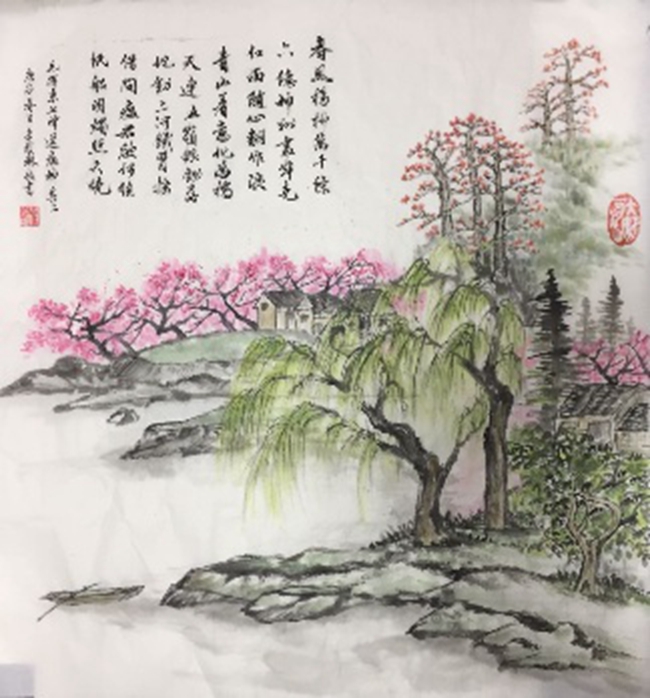 春風楊柳萬千條
六億神州盡舜堯
紅雨隨心翻作浪
青山着意化為橋
天連五嶺銀鋤落
地動三河鐵臂摇
借問瘟君欲何往
紙船明燭照天燒
毛澤東七律送瘟神